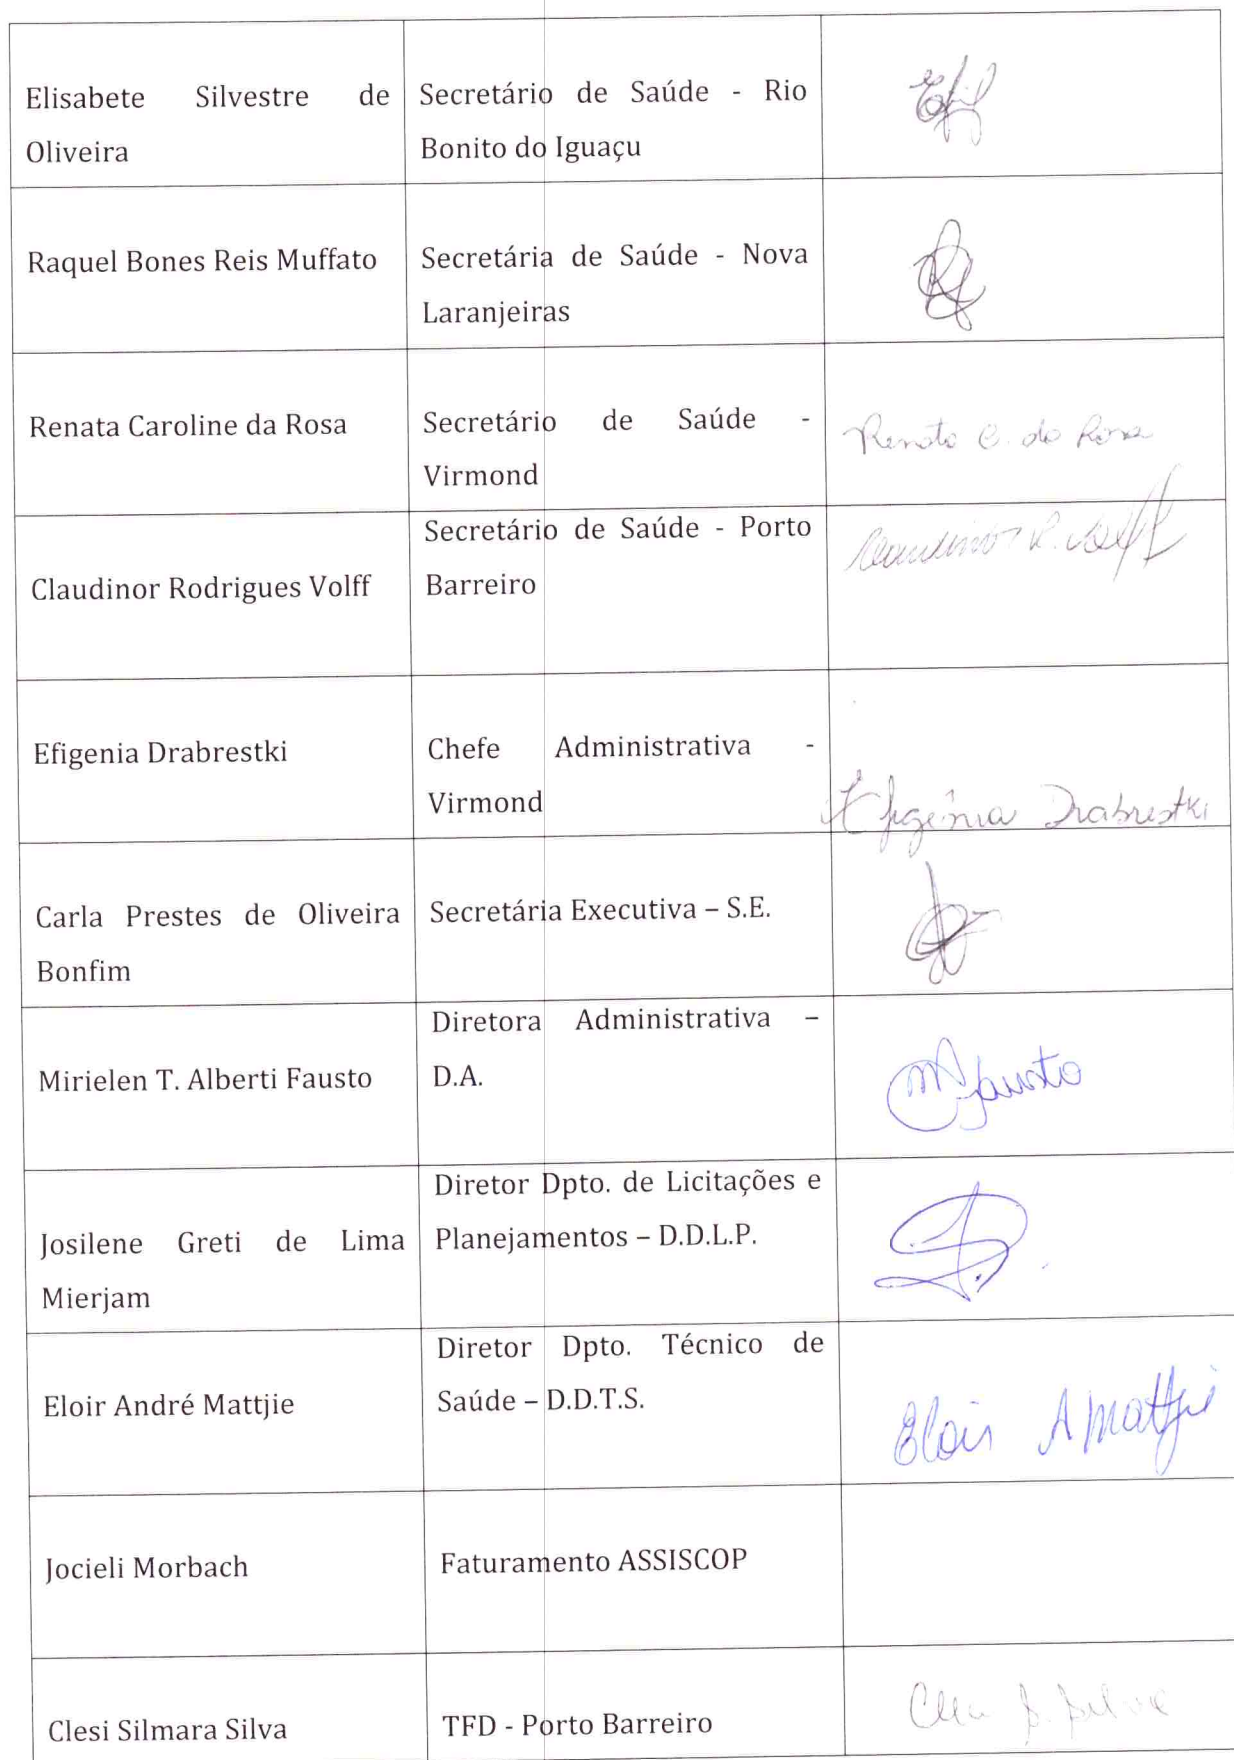 Elisabete Silvestre de
Oliveira
Secretário de Saúde - Rio
Bonito do Iguaçu
Raquel Bones Reis Muffato
Secretária de Saúde - Nova
Laranjeiras
Renata Caroline da Rosa
Secretário de Saúde -
Virmond
Renata C. da Rosa
Claudinor Rodrigues Volff
Secretário de Saúde - Porto
Barreiro
Claudinor R. Volff
Efigenia Drabrestki
Chefe Administrativa -
Virmond
Efigênia Drabrestki
Carla Prestes de Oliveira
Bonfim
Secretária Executiva – S.E.
Mirielen T. Alberti Fausto
Diretora Administrativa –
D.A.
Fausto
Josilene Greti de Lima
Mierjam
Diretor Dpto. de Licitações e
Planejamentos – D.D.L.P.
Eloir André Mattjie
Diretor Dpto. Técnico de
Saúde – D.D.T.S.
Eloir A Mattjie
Jocieli Morbach
Faturamento ASSISCOP
Clesi Silmara Silva
TFD - Porto Barreiro